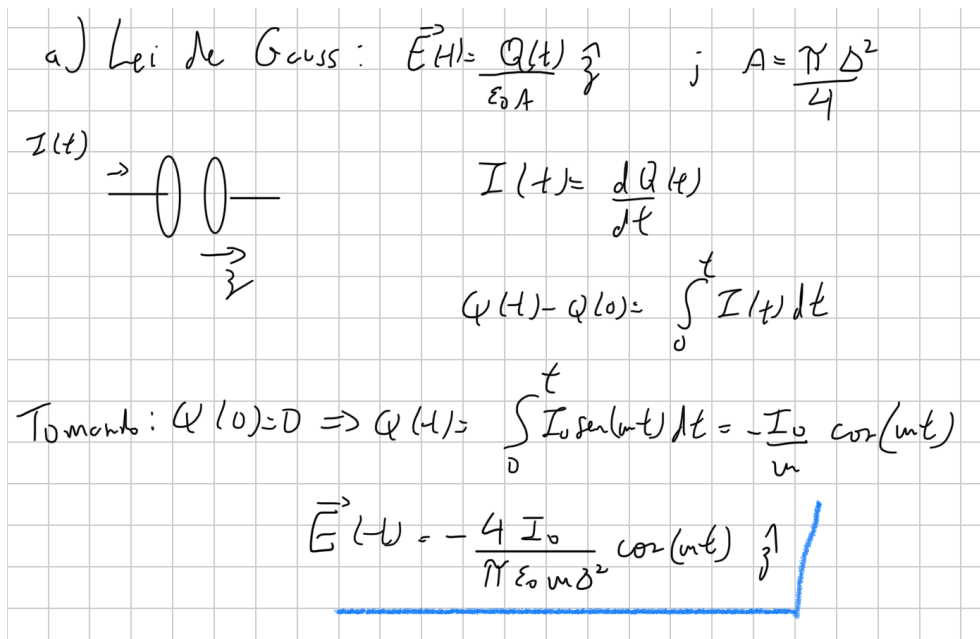 a) Lei de Gauss: E⃗(t)= Q(t)/(ε₀A) ẑ ; A= πD²/4
I(t)
I(t)= dQ(t)/dt
z
Q(t)-Q(0)= ∫₀ᵗ I(t)dt
Tomando: Q(0)=0 ⇒ Q(t)= ∫₀ᵗ I₀ sen(ωt)dt = -I₀/ω cos(ωt)
E⃗(t) = - 4 I₀/(π ε₀ ω D²) cos(ωt) ẑ